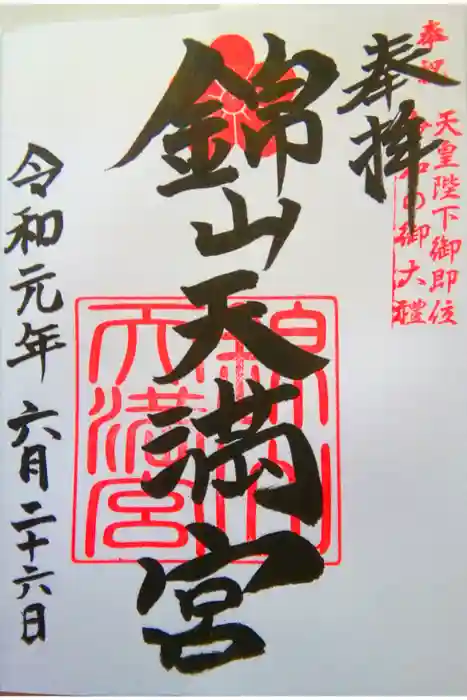 奉祝
天皇陛下御即位
令和の御大禮
奉拝
錦山天満宮
錦山天満宮
令和元年六月二十六日